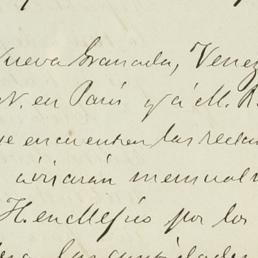 Nueva Granada, Venez
N. en Paris y á M. R
se encuentren las recla
avisarán mensual
H. en Méjico por los
las cantidades